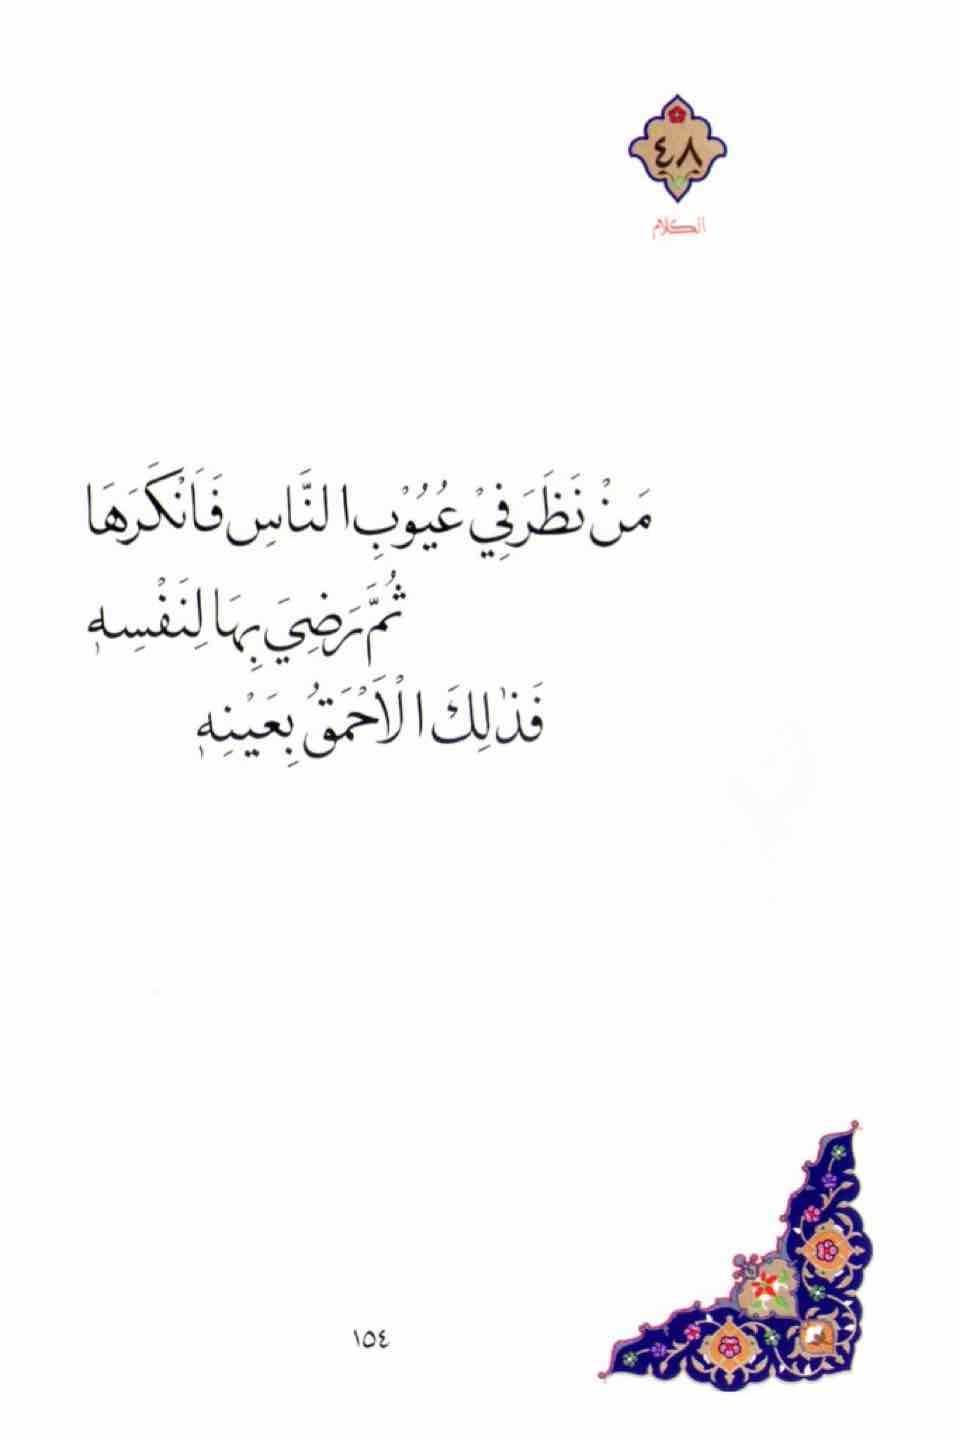 ٤٨
الكلام
مَنْ نَظَرَ فِيْ عُيُوْبِ النَّاسِ فَاَنْكَرَهَا
ثُمَّ رَضِيَ بِهَا لِنَفْسِهٖ
فَذٰلِكَ الْاَحْمَقُ بِعَيْنِهٖ
١٥٤